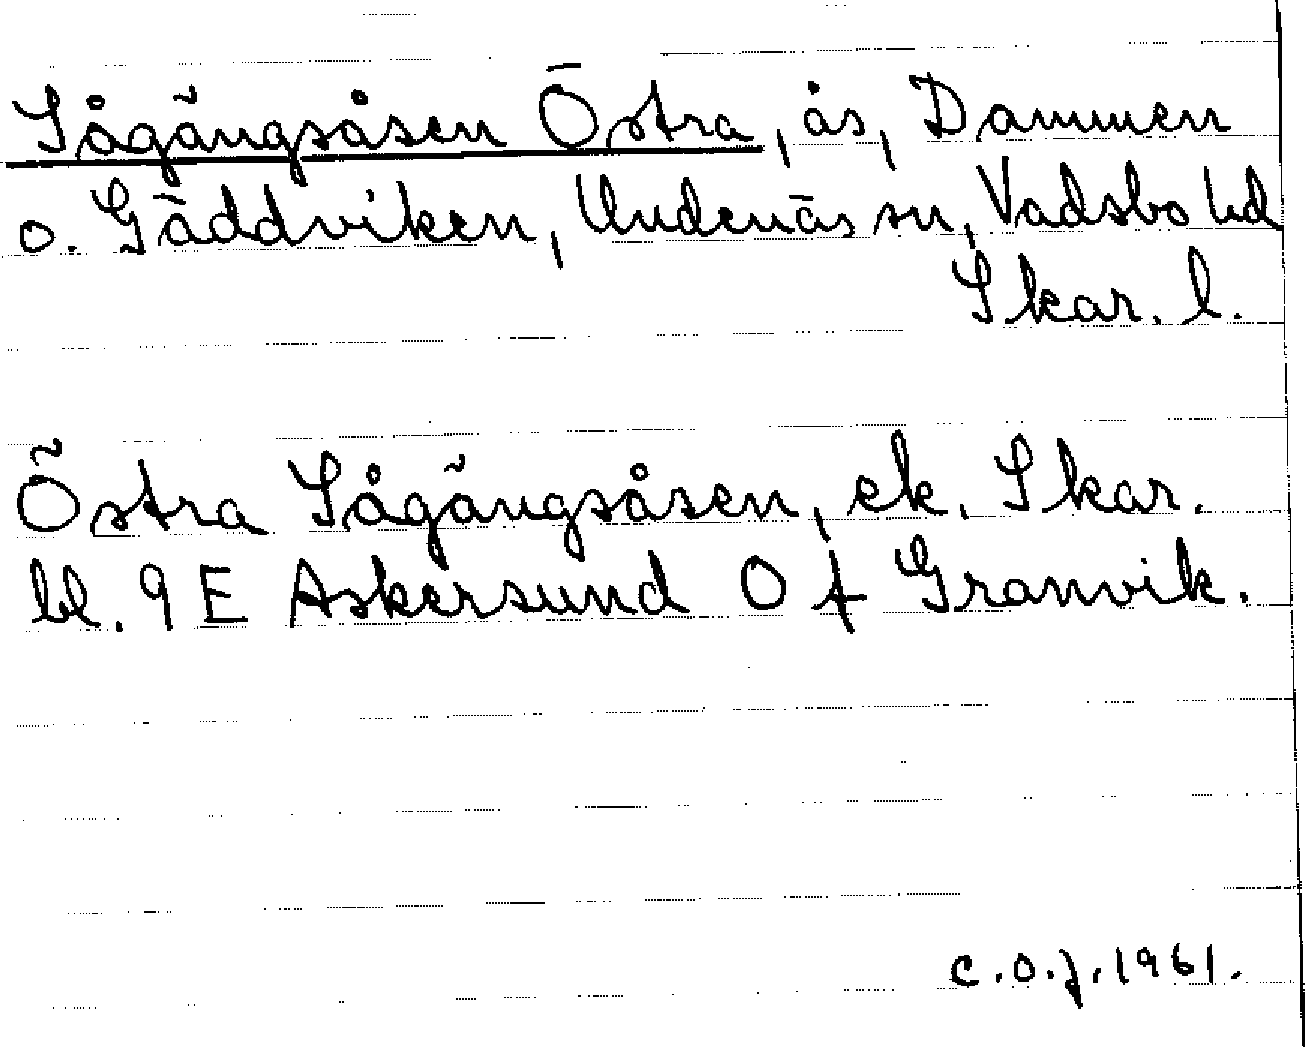 Sågängsåsen Östra, ås, Dammen
o. Gäddviken, Undenäs sn, Vadsbo hd
Skar. l.
Östra Sågängsåsen, ek. Skar.
bl. 9 E Askersund O f Granvik.
C.O.J. 1961.